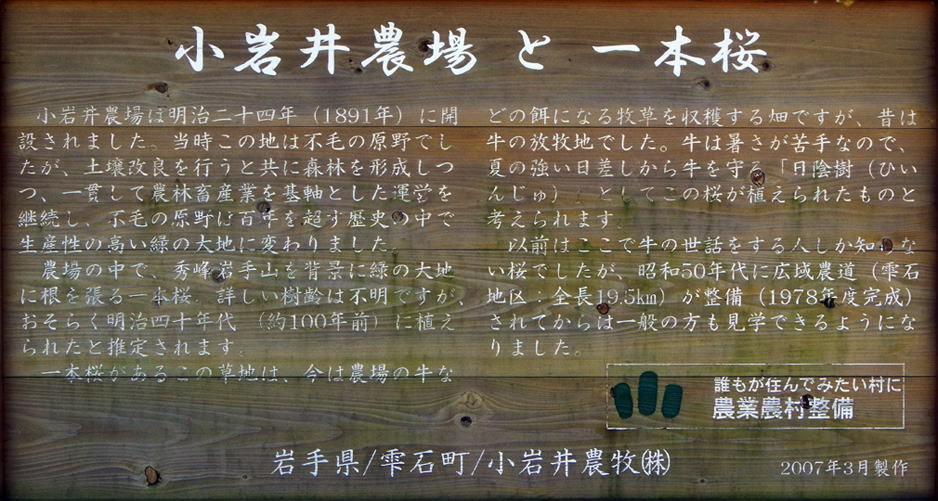 小岩井農場と一本桜
小岩井農場は明治二十四年（1891年）に開
設されました。当時この地は不毛の原野でし
たが、土壌改良を行うと共に森林を形成しつ
つ、一貫して農林畜産業を基軸とした運営を
継続し、不毛の原野は百年を超す歴史の中で
生産性の高い緑の大地に変わりました。
農場の中で、秀峰岩手山を背景に緑の大地
に根を張る一本桜。詳しい樹齢は不明ですが、
おそらく明治四十年代（約100年前）に植え
られたと推定されます。
一本桜があるこの草地は、今は農場の牛な
どの餌になる牧草を収穫する畑ですが、昔は
牛の放牧地でした。牛は暑さが苦手なので、
夏の強い日差しから牛を守る「日陰樹（ひい
んじゅ）」としてこの桜が植えられたものと
考えられます。
以前はここで牛の世話をする人しか知らな
い桜でしたが、昭和50年代に広域農道（雫石
地区：全長19.5km）が整備（1978年度完成）
されてからは一般の方も見学できるようにな
りました。
誰もが住んでみたい村に
農業農村整備
岩手県/雫石町/小岩井農牧㈱
2007年3月製作